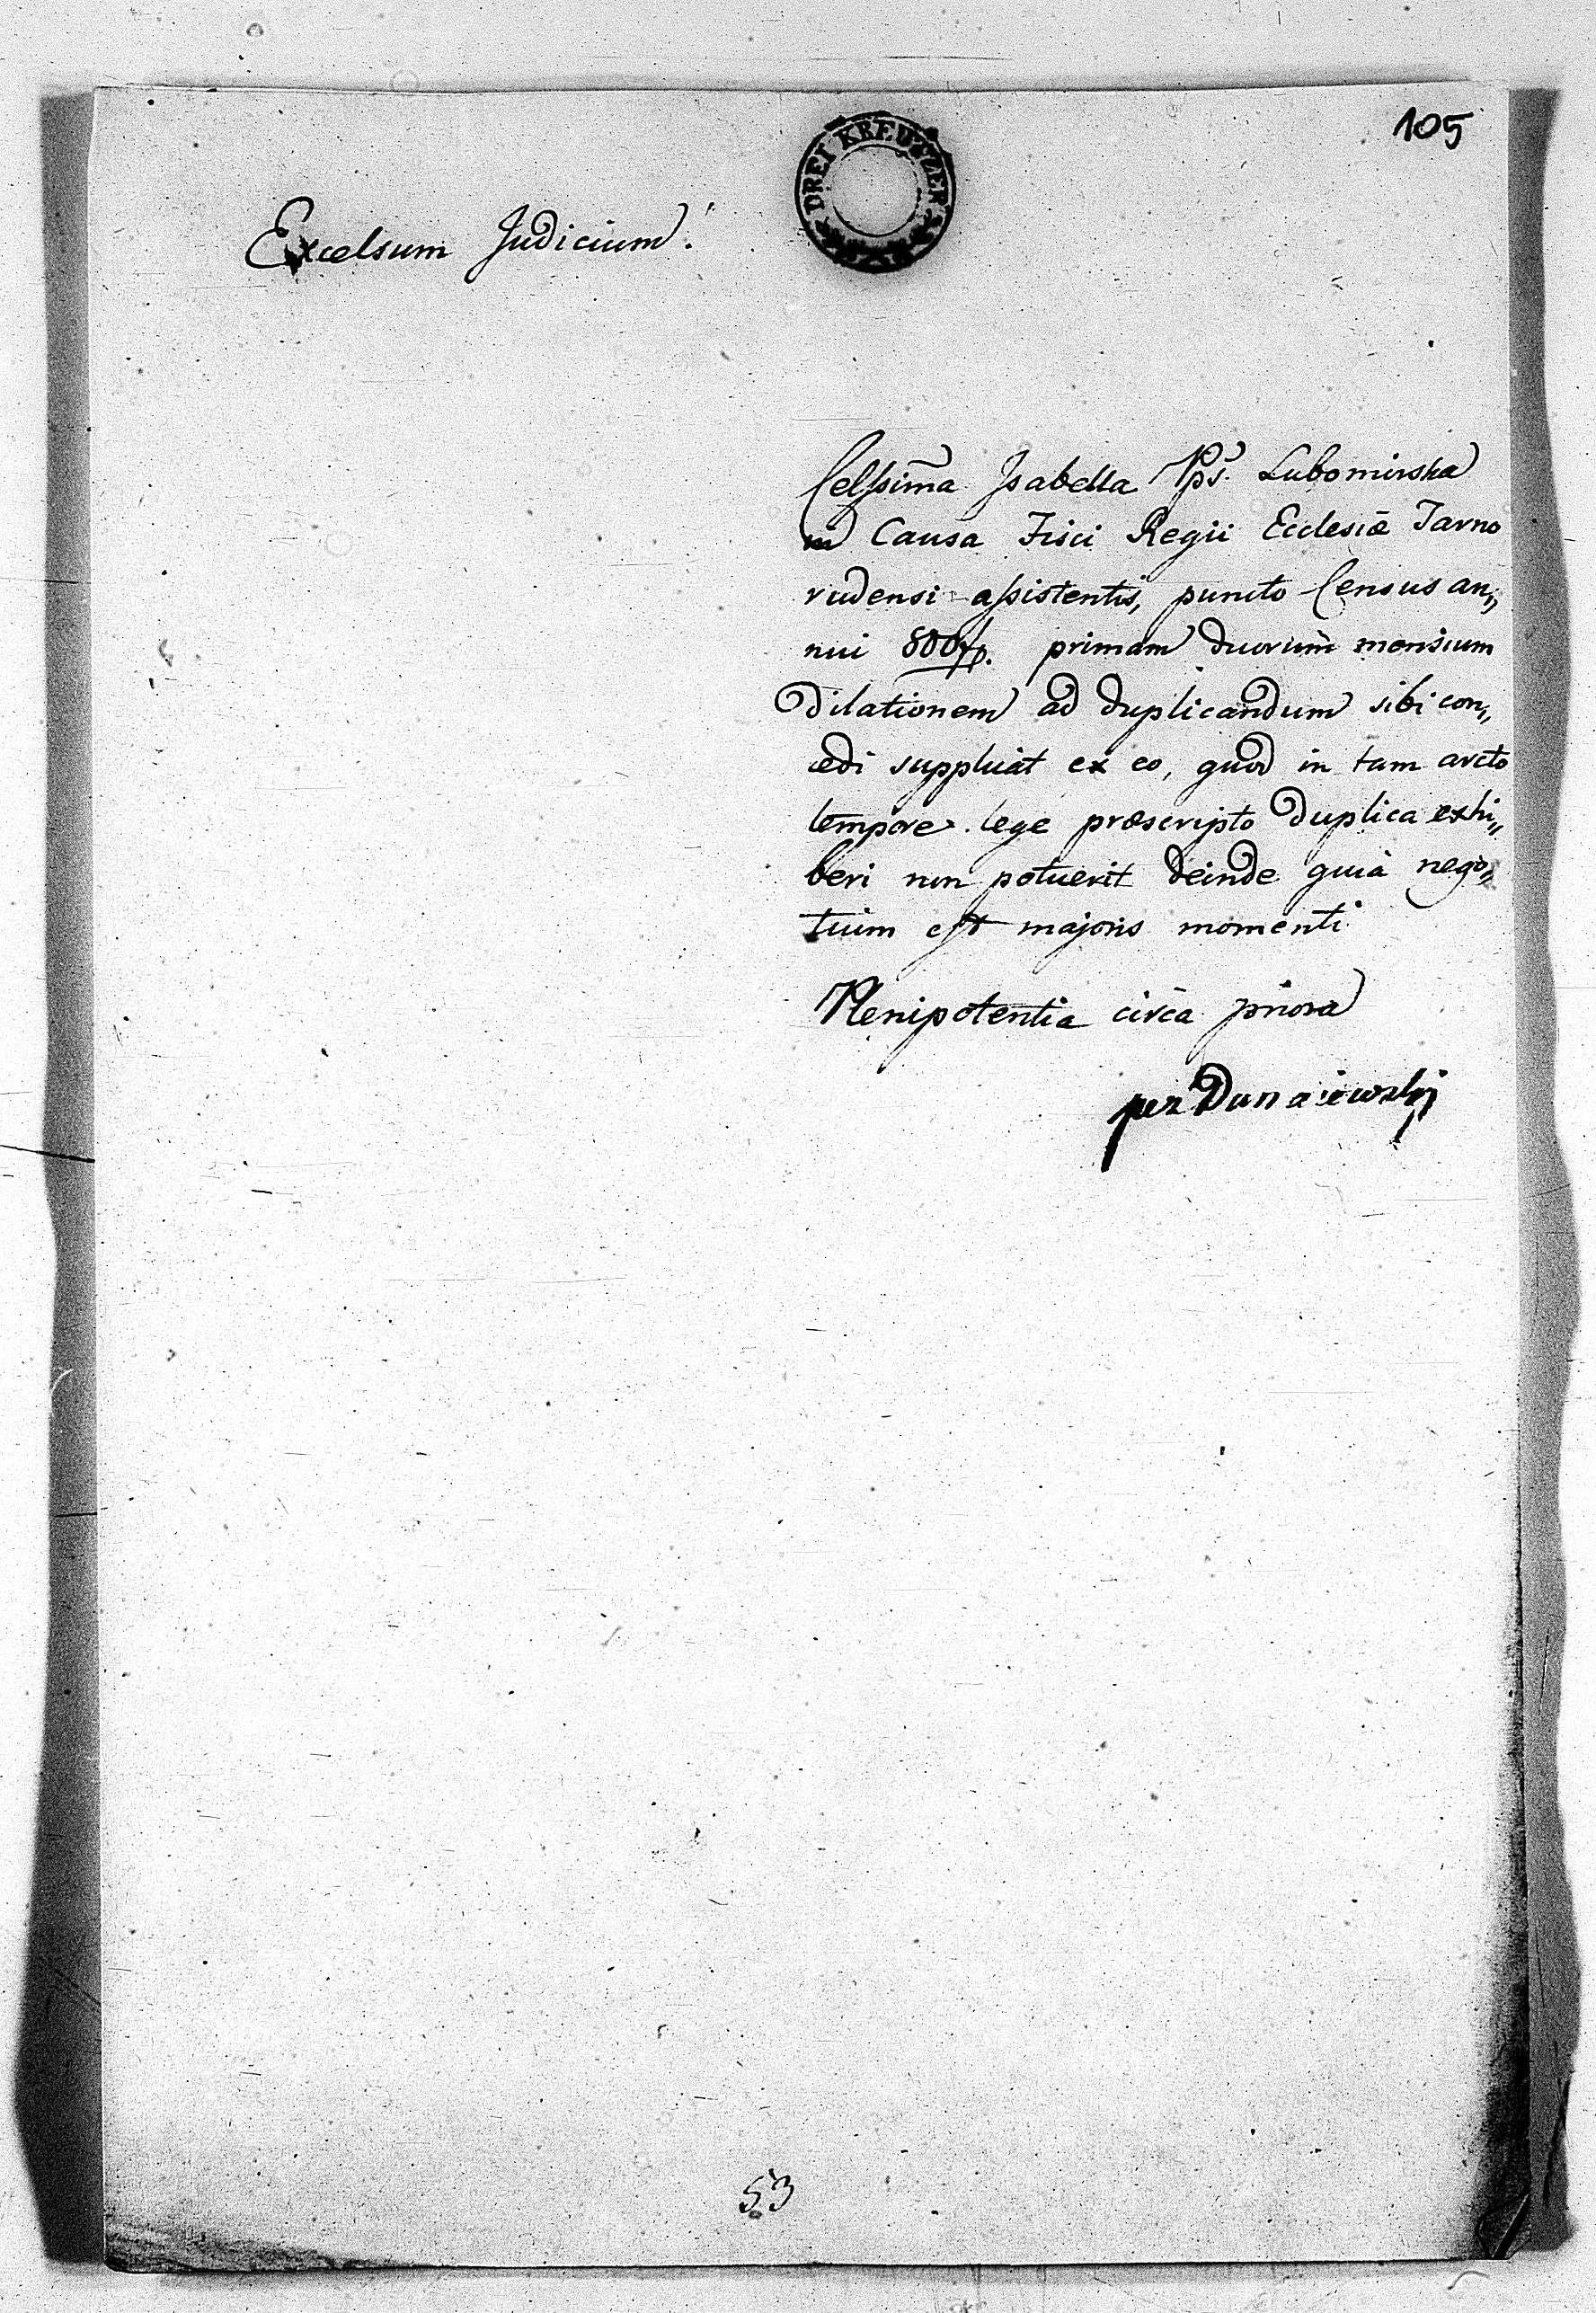 105
DREI KREUZER
Excelsum Judicium!
Celssima Isabella Pps. Lubomirska
in Causa Fisci Regii Ecclesiæ Tarno
rudensi assistentis, puncto Census an„
nui 800 fp. primam duorum mensium
Dilationem ad duplicandum sibi con„
cedi supplicat ex eo, quod in tam arcto
tempore lege præscripto Duplica exhi„
beri non potuerit deinde quia nego„
tium est majoris momenti
Plenipotentia circa priora
per Dunaiewski
53